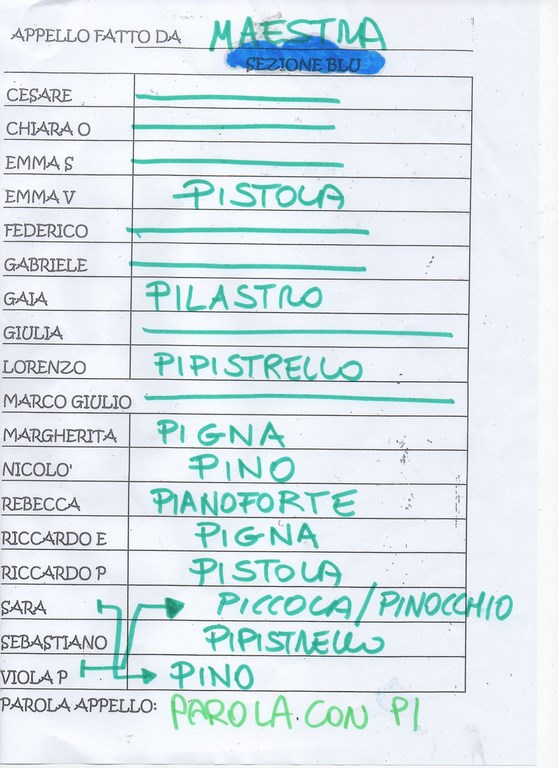 APPELLO FATTO DA MAESTRA
SEZIONE BLU
CESARE
CHIARA O
EMMA S
EMMA V PISTOLA
FEDERICO
GABRIELE
GAIA PILASTRO
GIULIA
LORENZO PIPISTRELLO
MARCO GIULIO
MARGHERITA PIGNA
NICOLO' PINO
REBECCA PIANOFORTE
RICCARDO E PIGNA
RICCARDO P PISTOLA
SARA PICCOLA/PINOCCHIO
SEBASTIANO PIPISTRELLO
VIOLA P PINO
PAROLA APPELLO: PAROLA CON PI